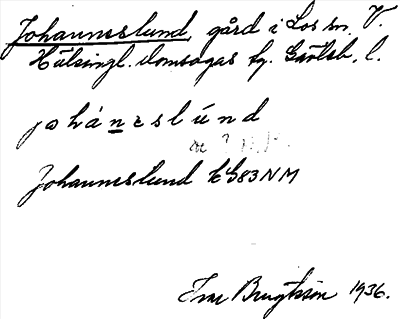 Johanneslund, gård i Los sn. V.
Hälsingl. domsagas tg. Gävleb. l.
johánɛslúnd
Johanneslund E G83NM
1936.